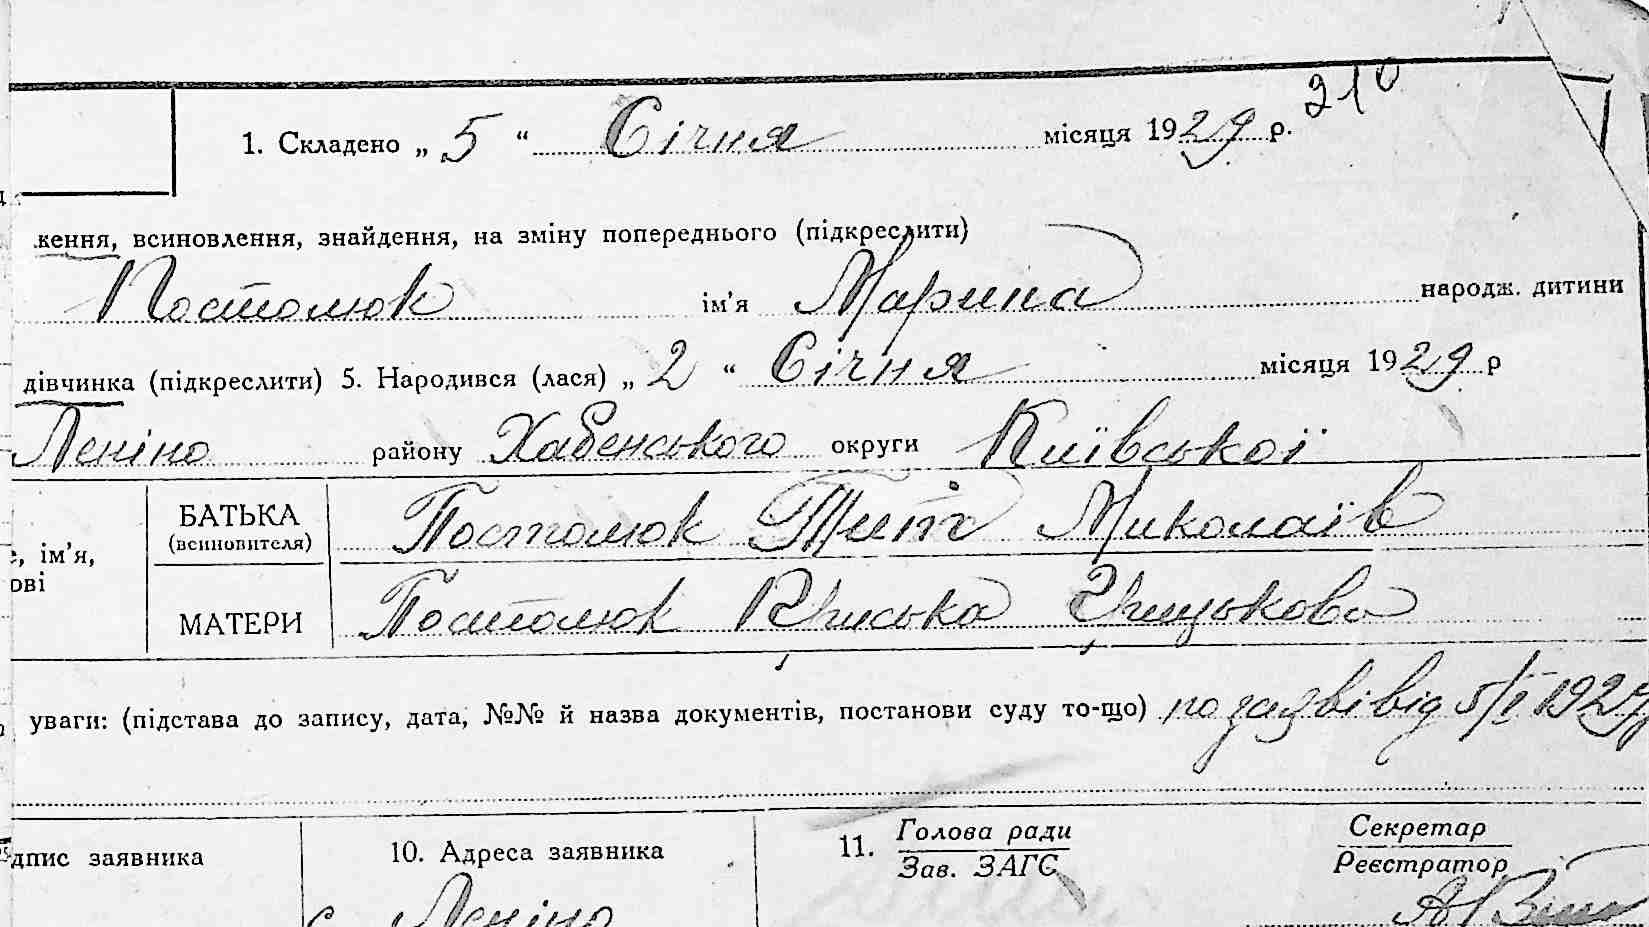 210
1. Складено „ 5 “ Січня місяця 1929 р.
ження, всиновлення, знайдення, на зміну попереднього (підкреслити)
Постолюк ім’я Марина народж. дитини
дівчинка (підкреслити) 5. Народився (лася) „ 2 “ Січня місяця 1929 р
Леніно району Хабенського округи Київської
БАТЬКА
(всиновителя)
Постолюк Миколаїв
ім’я,
ові
МАТЕРИ Постолюк Пріська Грицькова
уваги: (підстава до запису, дата, №№ й назва документів, постанови суду то-що) по заяві від 5/I 1929
дпис заявника 10. Адреса заявника 11. Голова ради Секретар
Зав. ЗАГС Реєстратор
с Леніно